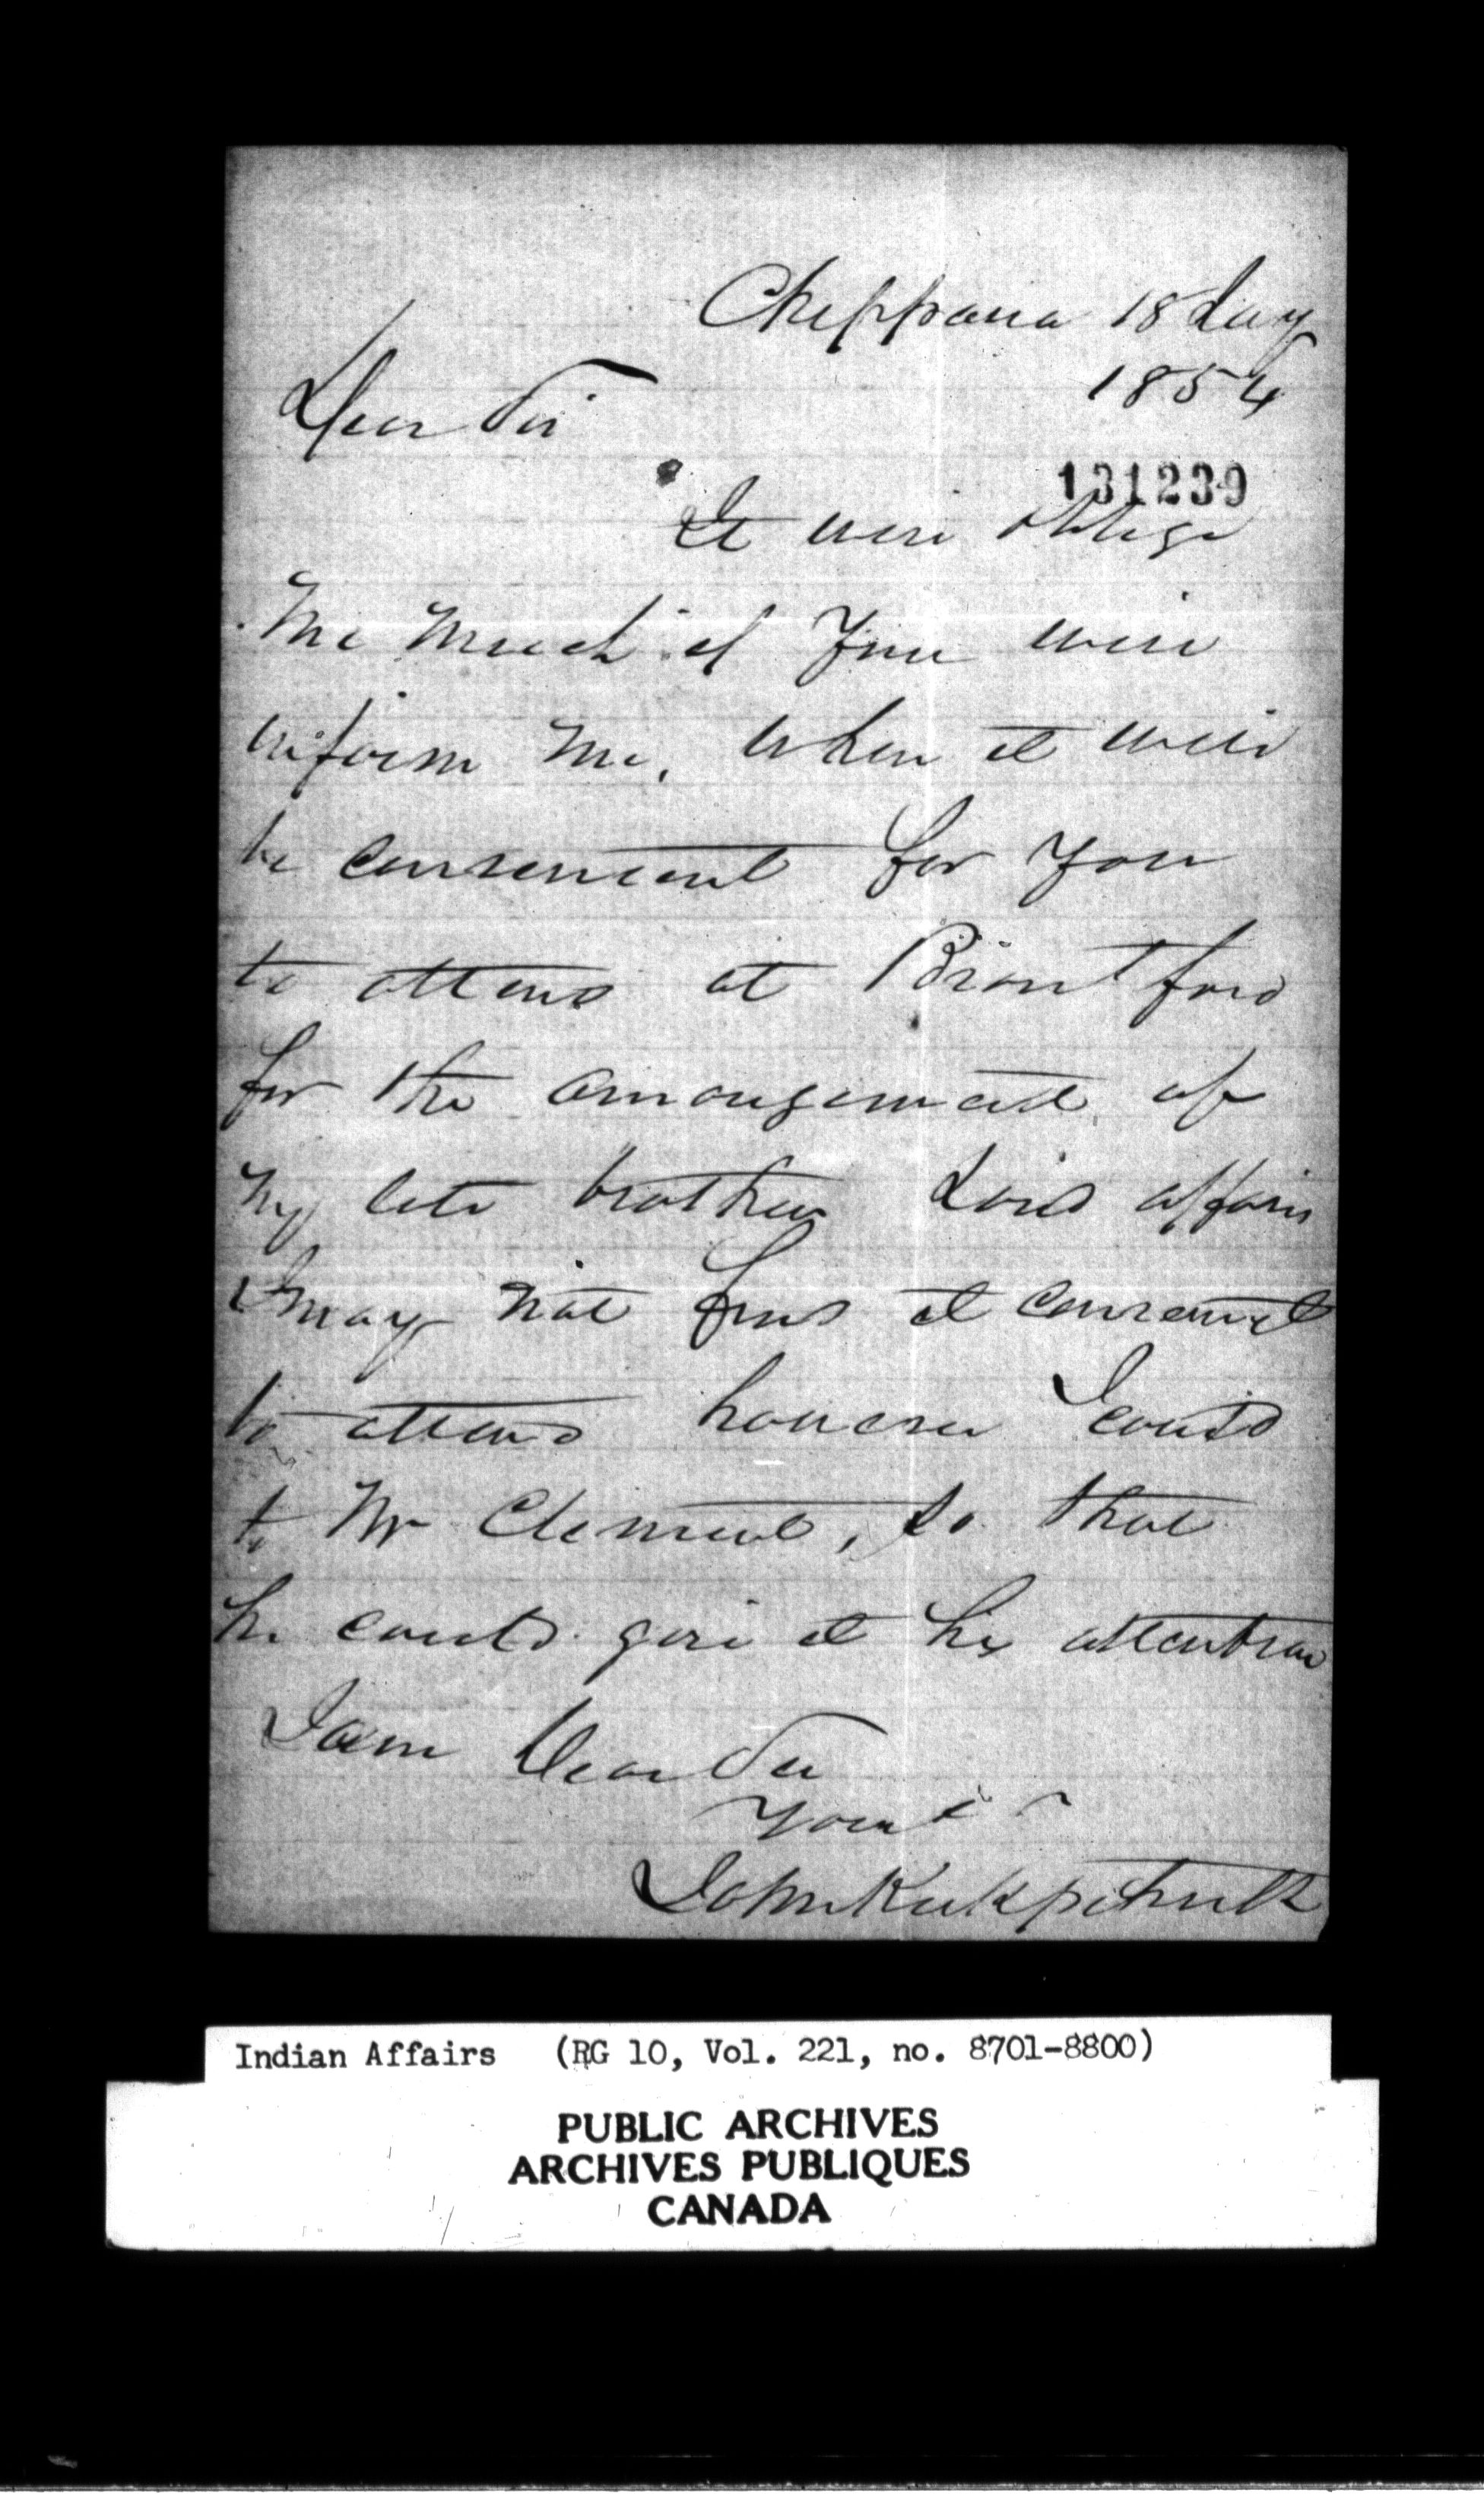 Chippawa 18 July
1854
Dear Sir
131239
It will oblige
me much if you will
inform me, when it will
be convenient for you
to attend at Brantford
for the arrangement of
my late brothers Land affairs
I may not find it convenient
to attend however I could
to Mr Clement, so that
he could give it his attention
I am Dear Sir
Yours
John Kirkpatrick
Indian Affairs (RG 10, Vol. 221, no. 8701-8800)
PUBLIC ARCHIVES
ARCHIVES PUBLIQUES
CANADA